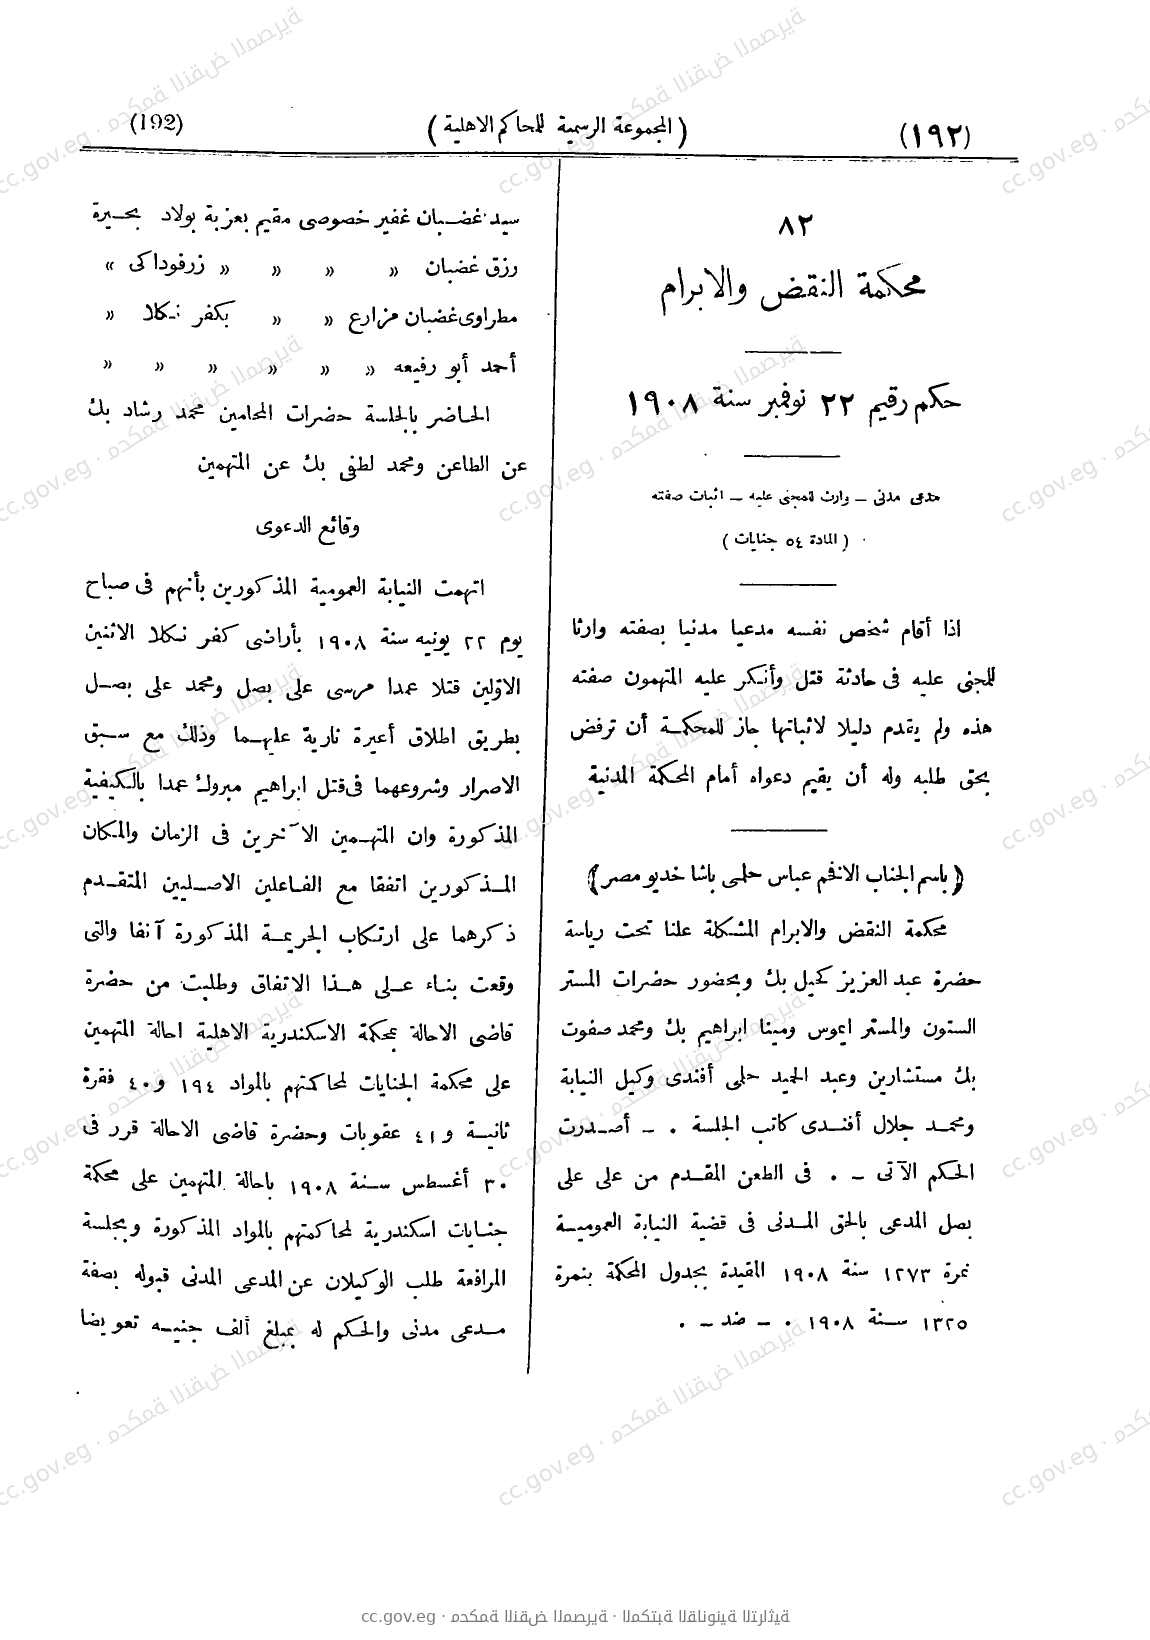 (192)
(المجموعة الرسمية للمحاكم الاهلية)
(١٩٢)
٨٢
محكمة النقض والابرام
حكم رقيم ٢٢ نوفمبر سنة ١٩٠٨
مدعى مدنى – وارث المجنى عليه – اثبات صفته
(المادة ٥٤ جنايات)
اذا أقام شخص نفسه مدعيا مدنيا بصفته وارثا
للمجنى عليه فى حادثة قتل وأنكر عليه المتهمون صفته
هذه ولم يقدم دليلا لاثباتها جاز للمحكمة أن ترفض
بحق طلبه وله أن يقيم دعواه أمام المحكمة المدنية
(باسم الجناب الافخم عباس حلمى باشا خديو مصر)
محكمة النقض والابرام المشكلة علنا تحت رياسة
حضرة عبد العزيز كحيل بك وبحضور حضرات المستر
الستون والمستر ايموس ومينا ابراهيم بك ومحمد صفوت
بك مستشارين وعبد الحميد حلمى أفندى وكيل النيابة
ومحمد جلال أفندى كاتب الجلسة . – أصدرت
الحكم الآتى – . فى الطعن المقدم من على على
بصل المدعى بالحق المدنى فى قضية النيابة العمومية
نمرة ١٢٧٣ سنة ١٩٠٨ المقيدة بجدول المحكمة بنمرة
١٣٢٥ سنة ١٩٠٨ . – ضد – .
سيد غضبان غفير خصوصى مقيم بعزبة بولاد بحيرة
رزق غضبان » » » » زرفوداكى »
مطراوى غضبان مزارع » » بكفر نكلا »
أحمد أبو رفيعه » » » » » »
الحاضر بالجلسة حضرات المحامين محمد رشاد بك
عن الطاعن ومحمد لطفى بك عن المتهمين
وقائع الدعوى
اتهمت النيابة العمومية المذكورين بأنهم فى صباح
يوم ٢٢ يونيه سنة ١٩٠٨ بأراضى كفر نكلا الاثنين
الاولين قتلا عمدا مرسى على بصل ومحمد على بصل
بطريق اطلاق أعيرة نارية عليهما وذلك مع سبق
الاصرار وشروعهما فى قتل ابراهيم مبروك عمدا بالكيفية
المذكورة وان المتهمين الآخرين فى الزمان والمكان
المذكورين اتفقا مع الفاعلين الاصليين المتقدم
ذكرهما على ارتكاب الجريمة المذكورة آنفا والتى
وقعت بناء على هذا الاتفاق وطلبت من حضرة
قاضى الاحالة بمحكمة الاسكندرية الاهلية احالة المتهمين
على محكمة الجنايات لمحاكمتهم بالمواد ١٩٤ و٤٠ فقرة
ثانية و٤١ عقوبات وحضرة قاضى الاحالة قرر فى
٣٠ أغسطس سنة ١٩٠٨ باحالة المتهمين على محكمة
جنايات اسكندرية لمحاكمتهم بالمواد المذكورة وبجلسة
المرافعة طلب الوكيلان عن المدعى المدنى قبوله بصفة
مدعى مدنى والحكم له بمبلغ ألف جنيه تعويضا
cc.gov.eg · محكمة النقض المصرية · المكتبة القانونية التراثية